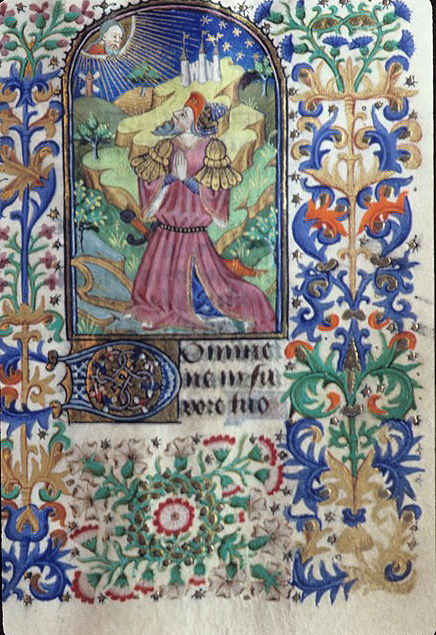 Domine
ne in fu
rore tuo